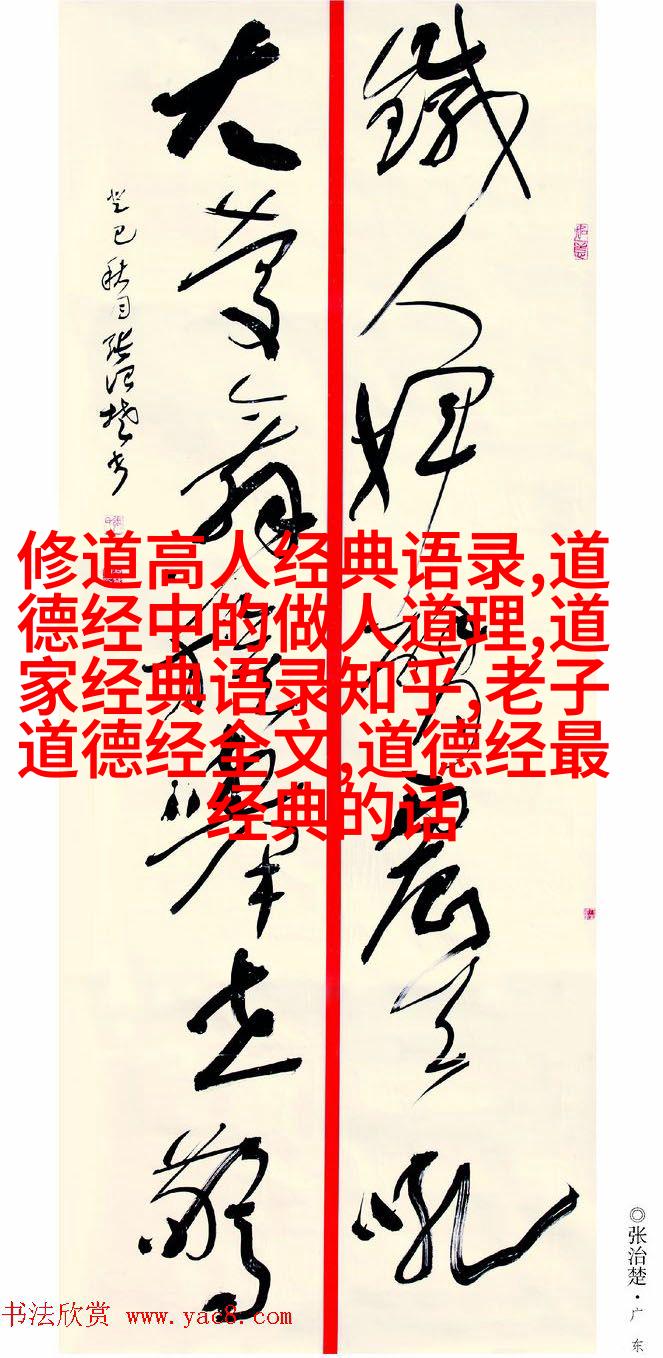 鐵人揮臂震天吼
大慶紅旗舉世驚
癸巳秋月张治楚书
修道高人经典语录,道
德经中的做人道理,道
家经典语录知乎,老子
道德经全文,道德经最
经典的话
◎张治楚·广东
书法欣赏 www.yac8.com